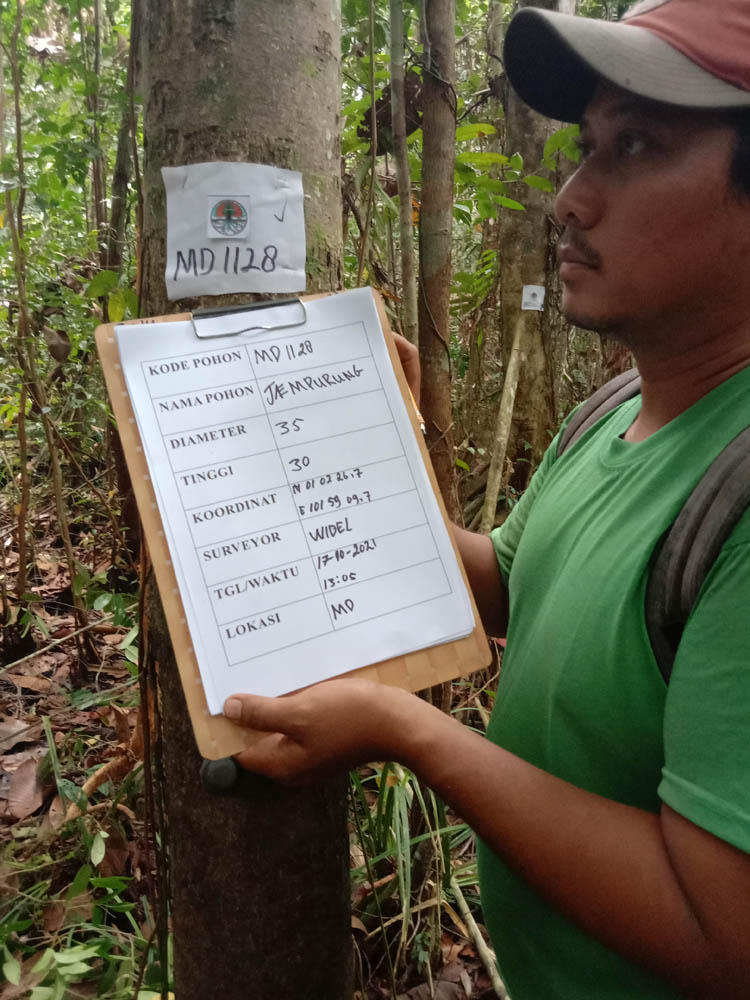 MD 1128
KODE POHON MD 1128
NAMA POHON JEMPURUNG
DIAMETER 35
TINGGI 30
KOORDINAT N 01 02 26.7
E 101 59 09.7
SURVEYOR WIDEL
TGL/WAKTU 17-10-2021
13:05
LOKASI MD